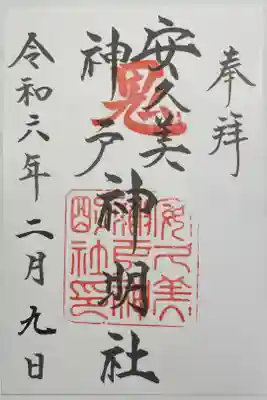 奉拝
安久美
神戸
神明社
鬼
安久美
神戸神
明社印
令和六年二月九日